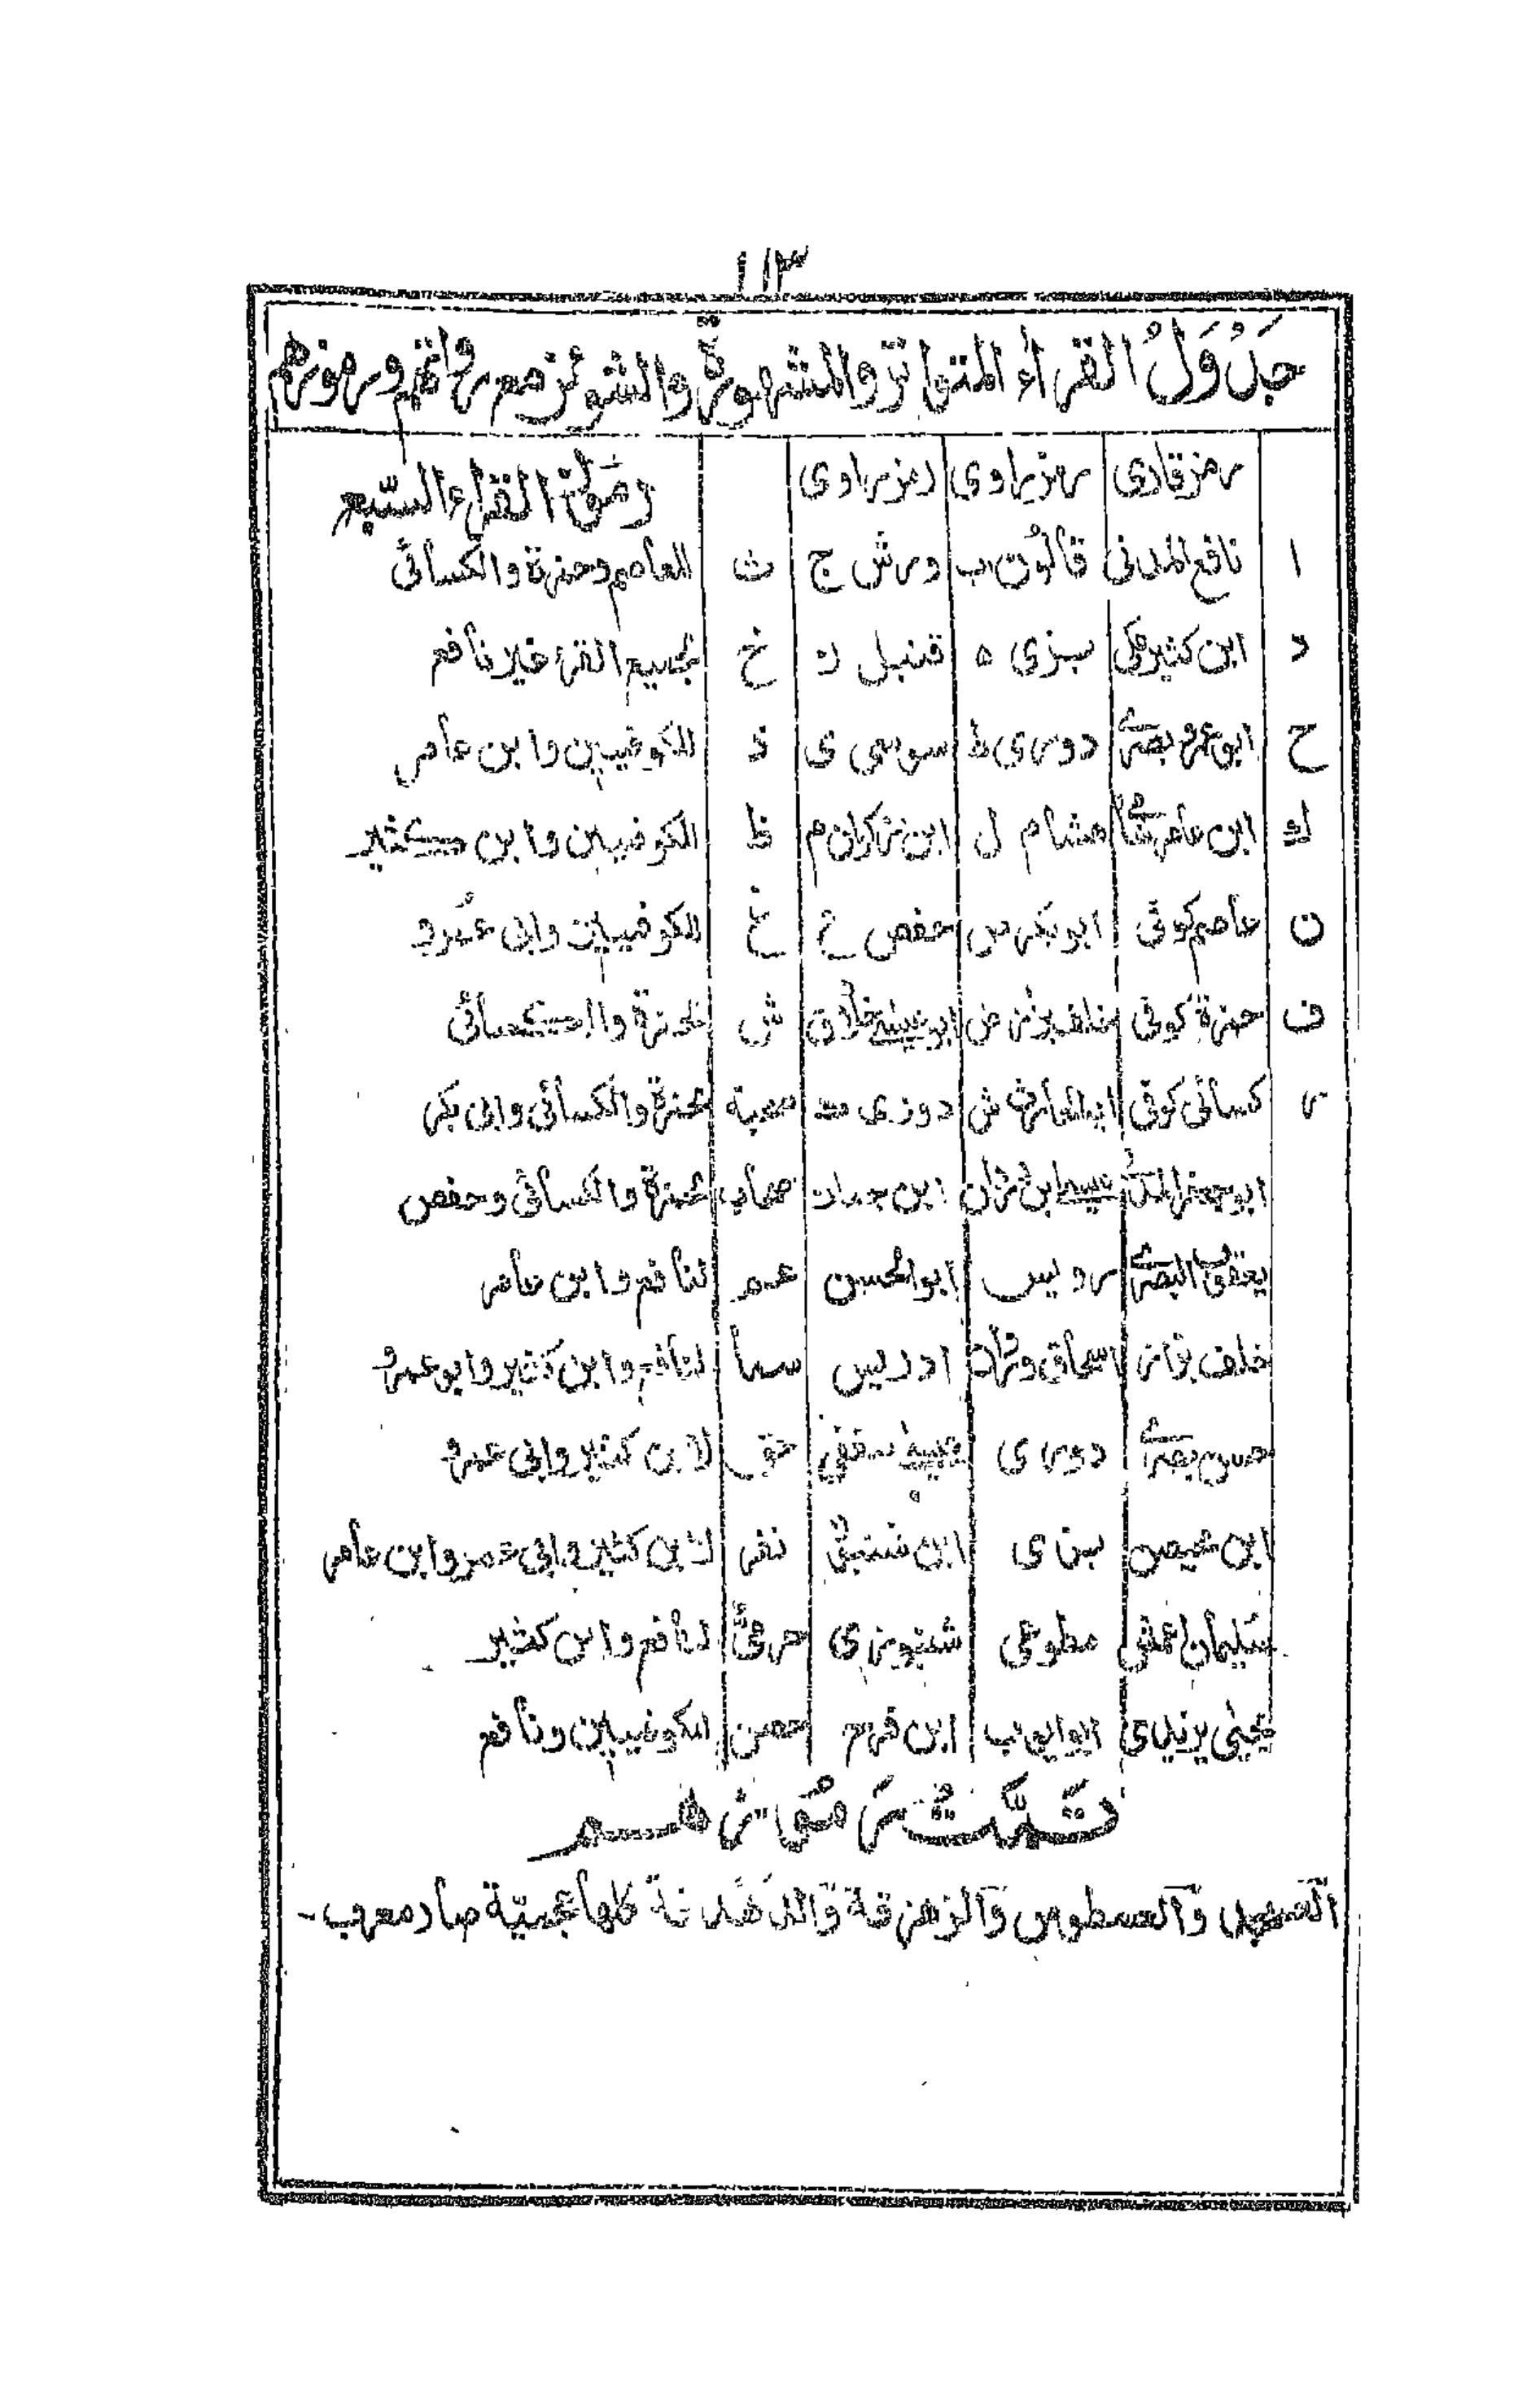 ١١٣
جَدْوَلُ القراء المتواترة والمشهورة والشوئز مع رواتهم ورموزهم
رمز قاری رمز راوی رمز راوی رموز القراء السّبع
ا نافع المدنی قالون ب ورش ج ث للعاصم وحمزة والکسائی
د ابن کثیر مکی بزی ه قنبل ز خ لجمیع القراء غیر نافع
ح ابو عمرو بصری دوری ط سوسی ی ذ للکوفیین وابن عامر
ك ابن عامر شامی هشام ل ابن زکوان م ظ للکوفیین وابن کثیر
ن عاصم کوفی ابوبکر ص حفص ع غ للکوفیین وابی عمرو
ف حمزة کوفی خلف بزار ض خلاق ش لحمزة والکسائی
ر کسائی کوفی ابو الحارث ش دوری صحبة لحمزة والکسائی وابی بکر
ابو جعفر المدنی عیسی ابن وردان ابن جماز صحاب لحمزة والکسائی وحفص
یعقوب البصری رویس ابو الحسن عم لنافع وابن عامر
خلف بزار اسحاق وراق ادریس سما لنافع وابن کثیر وابو عمرو
حسن بصری دوری عیسی ثقفی حق لابن کثیر وابی عمرو
ابن محیصن بزی ابن شنبوذ نفر لابن کثیر وابی عمرو وابن عامر
سلیمان اعمش مطوعی شنبوزی حرمی لنافع وابن کثیر
یحیی یزیدی ابو ایوب ابن فرح حصن للکوفیین ونافع
تَمَّتْ رَمُوزُهُم
وَالعسطوس وَالزهزقة كلها عجمیّة صاد معرب -